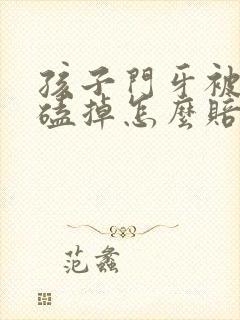 孩子門牙被
磕掉怎麼賠
范蠡